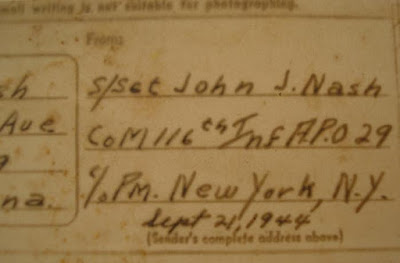 small writing is not suitable for photographing.
From:
sh
S/Sgt John J. Nash
Ave
Co M 116th Inf A.P.O 29
na.
c/o Pm. New York, N.Y.
Sept 21, 1944
(Sender's complete address above)